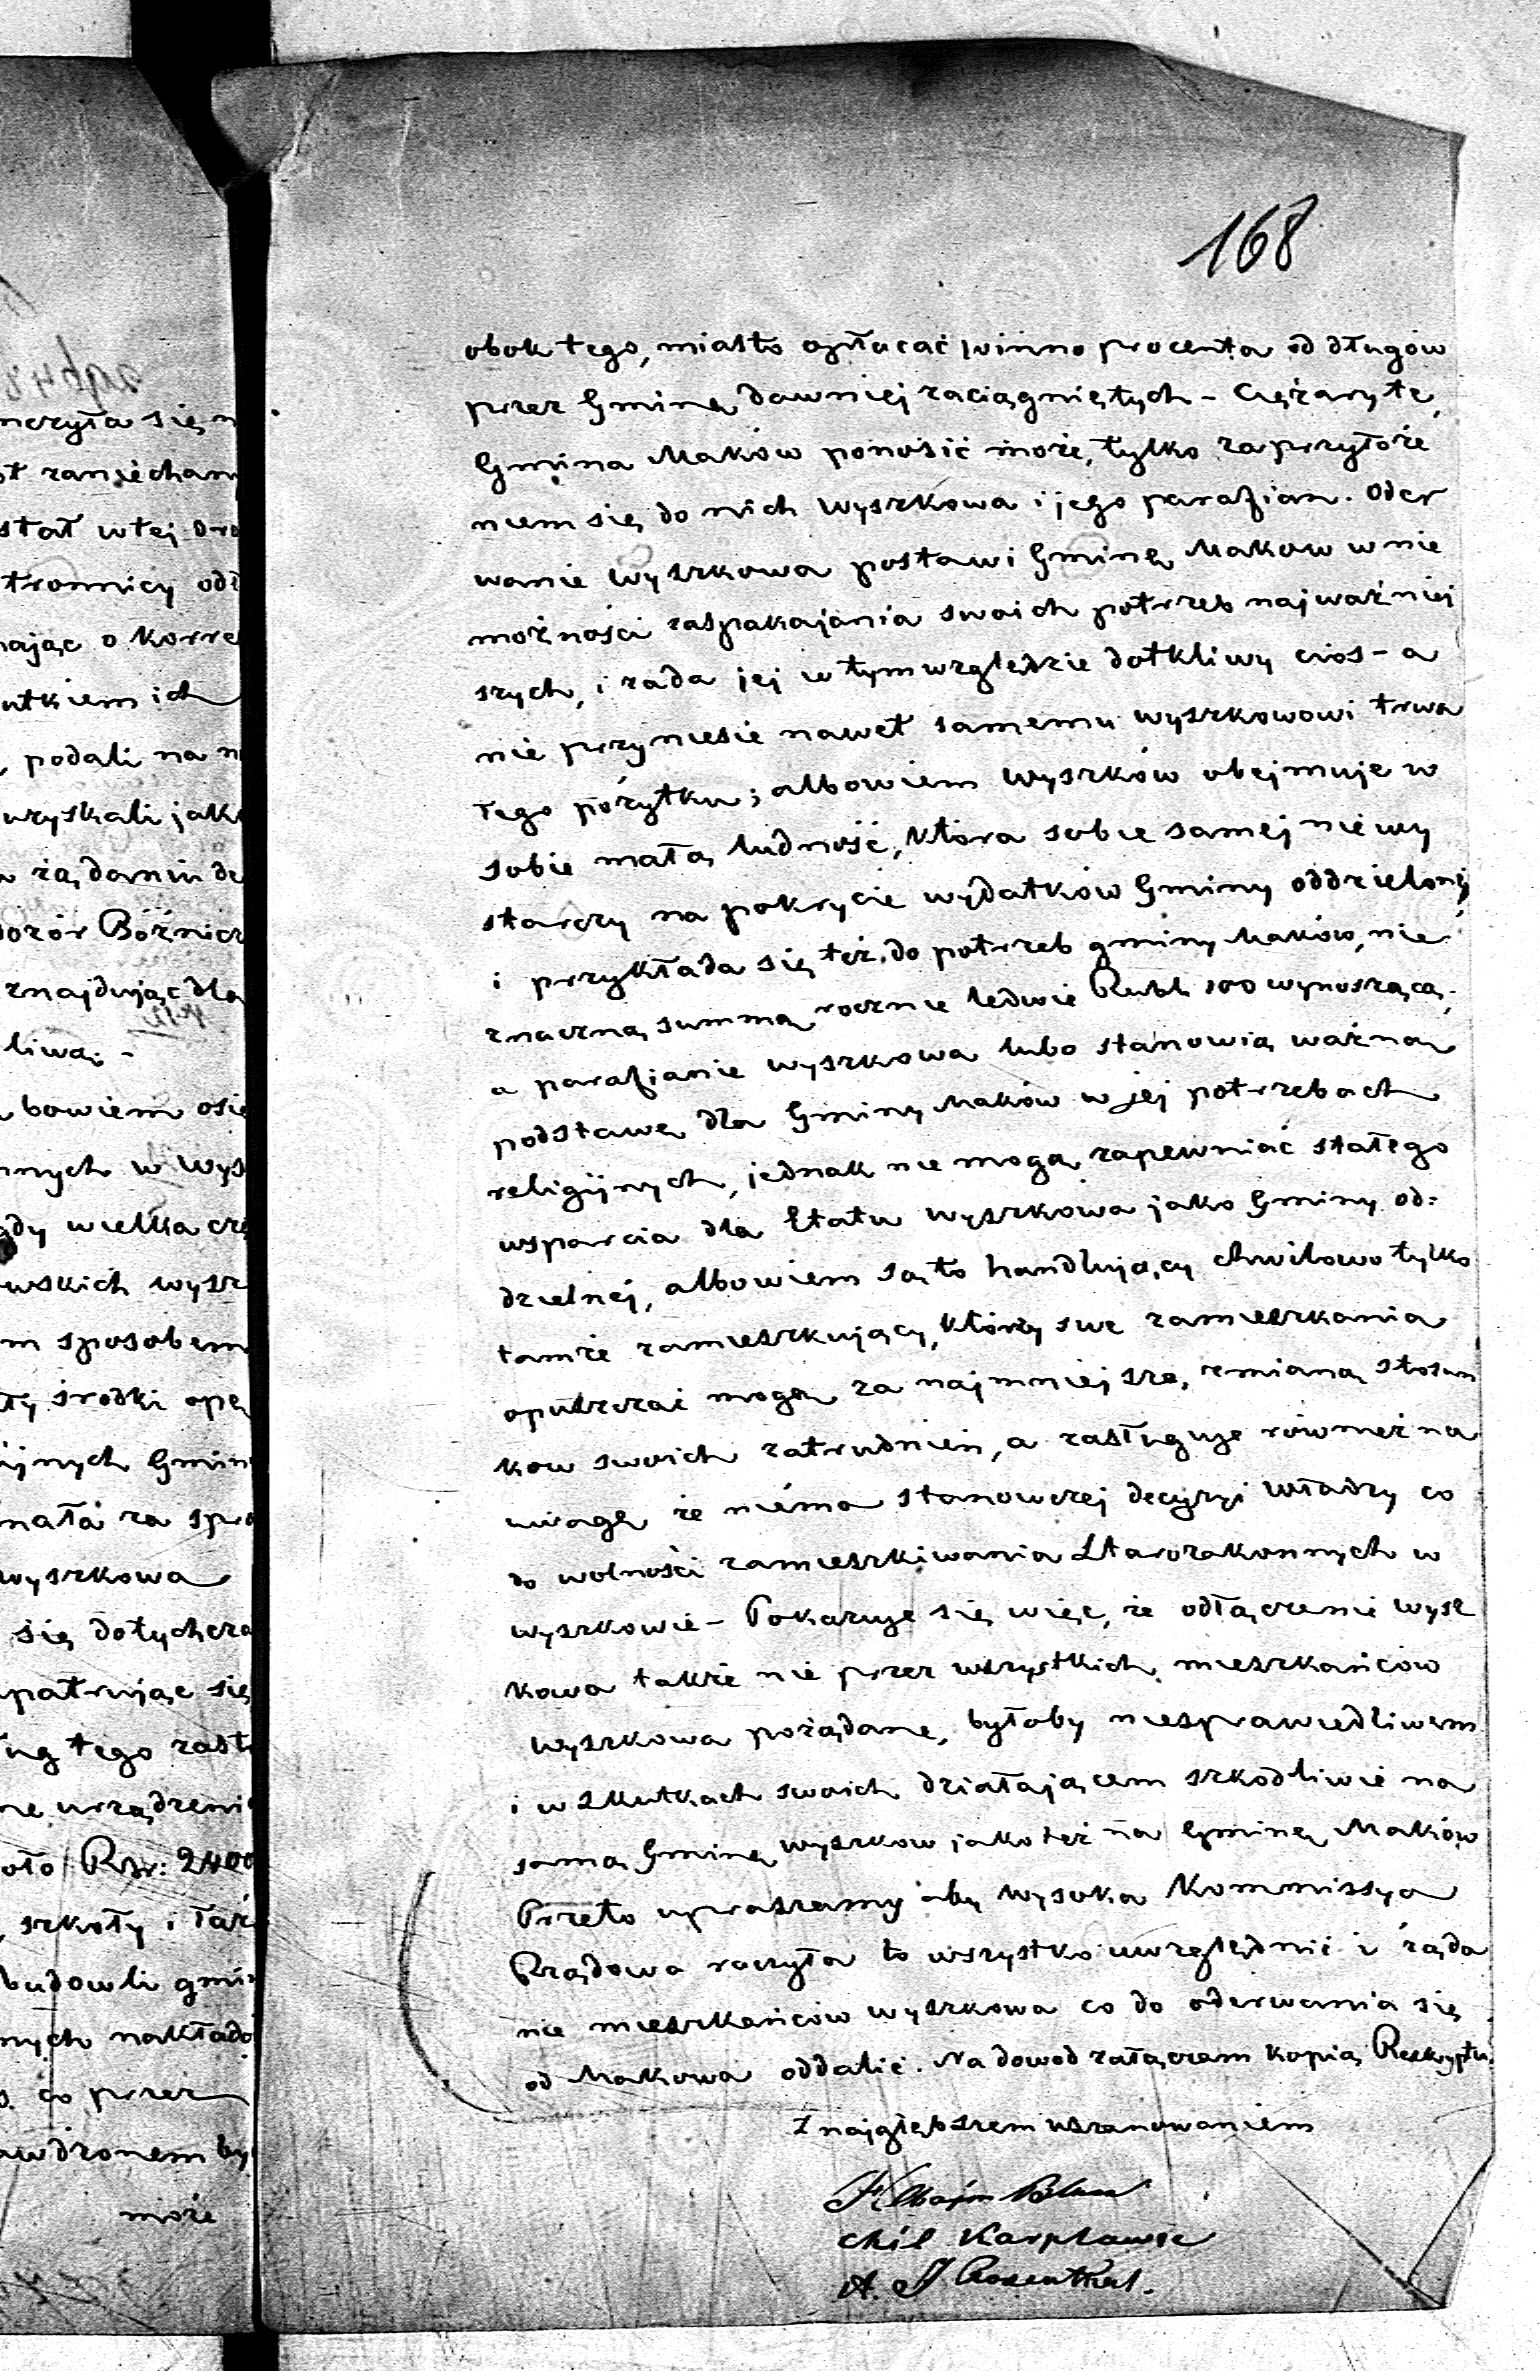 168
obok tego, miasto opłacać winno procenta od długów
przez Gminę dawniej zaciągniętych - Ciężary te,
Gmina Maków ponosić może, tylko za przyłoże
niem się do nich Wyszkowa i jego parafian. Oder
wanie Wyszkowa postawi Gminę Makow w nie
możności zaspakajania swoich potrzeb najważniej
szych, i zada jej w tym względzie dotkliwy cios - a
nie przyniesie nawet samemu Wyszkowowi trwa
łego pożytku; albowiem Wyszków obejmuje w
sobie małą ludność, która sobie samej nie wy
starczy na pokrycie wydatków Gminy oddzielonej
i przykłada się też do potrzeb gminy Maków, nie
znaczną summą rocznie ledwie Rubli 100 wynoszącą,
a parafianie Wyszkowa lubo stanowią ważną
podstawę dla Gminy Maków w jej potrzebach
religijnych, jednak nie mogą zapewniać stałego
wsparcia dla Etatu Wyszkowa jako Gminy od:
dzielnéj, albowiem są to handlujący chwilowo tylko
tamże zamieszkujący, którzy swe zamieszkania
opuszczać mogą za najmniejszą zmianą stosun
kow swoich zatrudnień, a zasługuje również na
uwagę że niéma stanowczej decyzyi władzy co
do wolności zamieszkiwania Starozakonnych w
Wyszkowie - Pokazuje się więc, że odłączenie Wysz
kowa także nie przez wszystkich mieszkańców
Wyszkowa pożądane, byłoby niesprawiedliwem
i w skutkach swoich działającem szkodliwie na
samą Gminę Wyszkow jako też na Gminę Maków
Przeto upraszamy aby Wysoka Kommissya
Rządowa raczyła to wszystko uwzględnić i żąda
nie mieszkańców Wyszkowa co do oderwania się
od Makowa oddalić. Na dowod załączam kopią Reskryptu.
Z najgłębszem uszanowaniem
Blum
Chil Karpławie
A. J. Rosenthal.
nczyła się n
stał w tej dro
tronnicy odł
ając o korre
utkiem ich
, podali na n
uzyskali jak
żądaniu de
dozór Bóżnicz
znajdując dla
liwą. -
bowiem osie
nnych w Wys
gdy wielka czę
wskich wysz
m sposobem
ty środki opę
ijnych Gmin
nała za spra
wyszkowa
się dotychcza
patrując się
ług tego zast
ne urządzeni
oło Rsr: 2400
, szkoły i łaź
budowli gmi
nych nakłado
co przez
awdzonem by
może